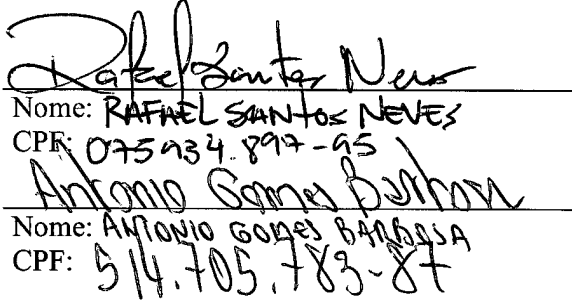 Rafael Santos Neves
Nome: RAFAEL SANTOS NEVES
CPF: 075934.897-95
Antonio Gomes Barbosa
Nome: ANTONIO GOMES BARBOSA
CPF: 514.705.783-87